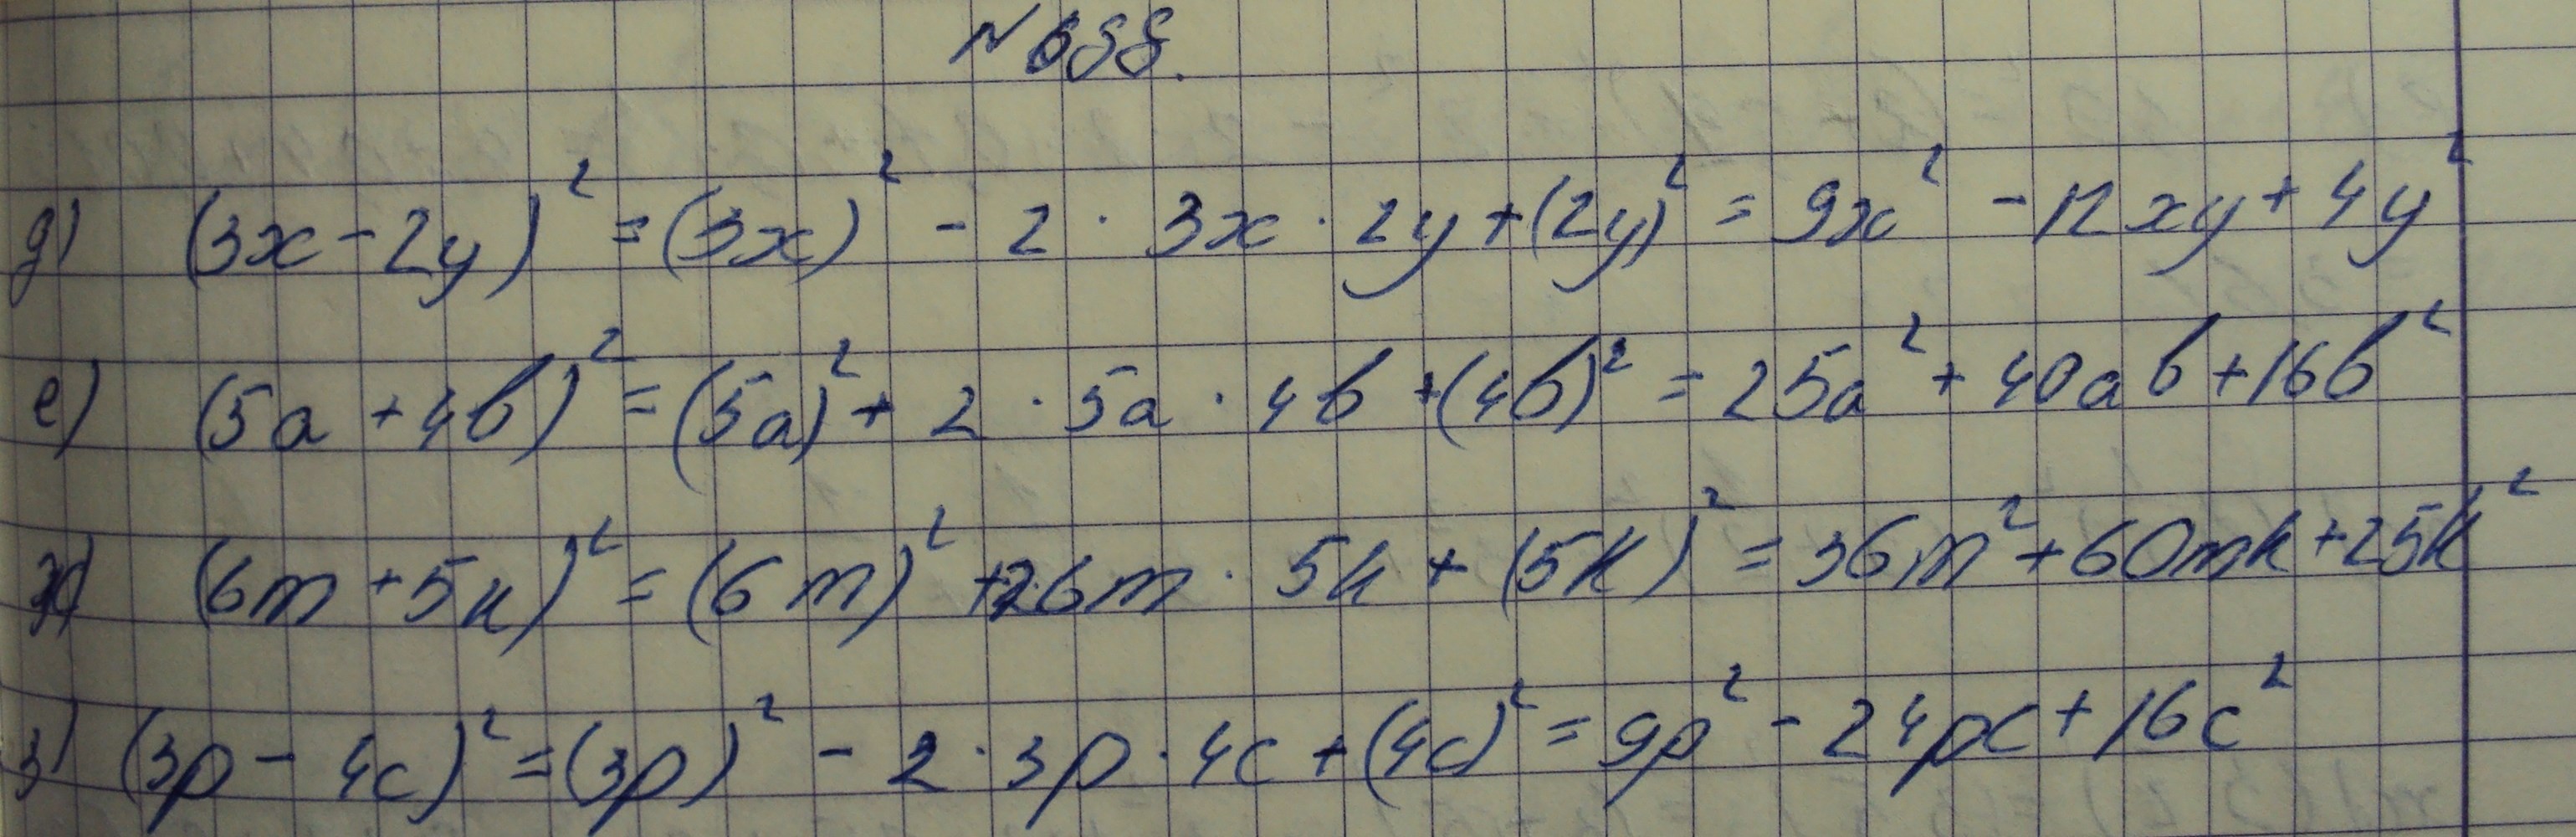 № 688.
д) (3x - 2y)² = (3x)² - 2 · 3x · 2y + (2y)² = 9x² - 12xy + 4y²
е) (5a + 4b)² = (5a)² + 2 · 5a · 4b + (4b)² = 25a² + 40ab + 16b²
ж) (6m + 5k)² = (6m)² + 2·6m · 5k + (5k)² = 36m² + 60mk + 25k²
з) (3p - 4c)² = (3p)² - 2 · 3p · 4c + (4c)² = 9p² - 24pc + 16c²